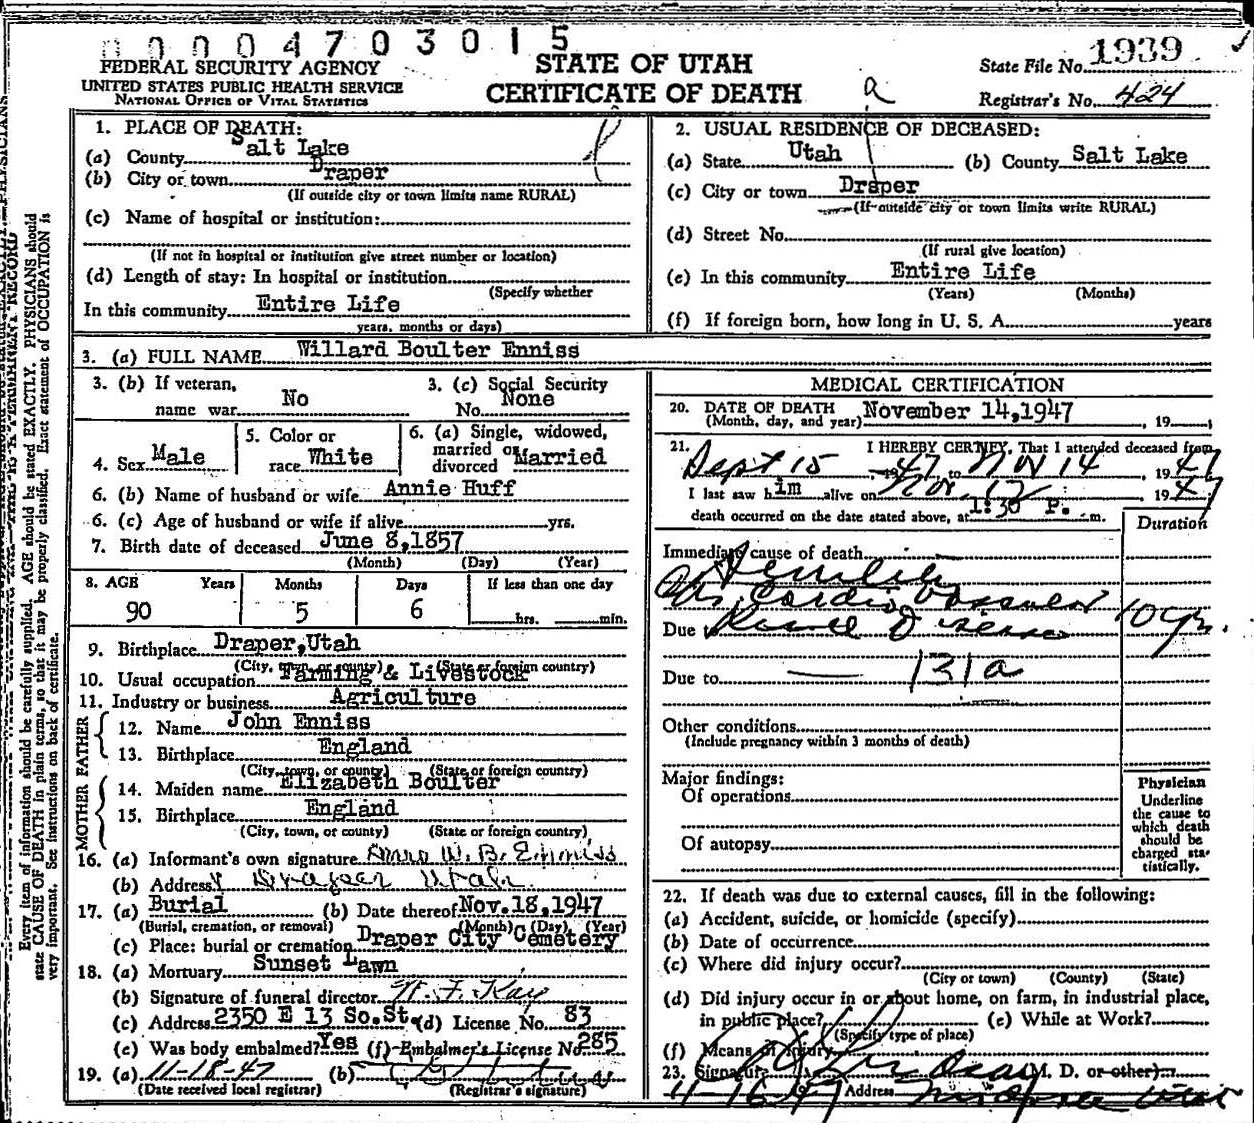 00004703015
FEDERAL SECURITY AGENCY
UNITED STATES PUBLIC HEALTH SERVICE
NATIONAL OFFICE OF VITAL STATISTICS
STATE OF UTAH
CERTIFICATE OF DEATH
State File No. 1939
Registrar's No. 424
1. PLACE OF DEATH:
(a) County Salt Lake
(b) City or town Draper
(If outside city or town limits name RURAL)
(c) Name of hospital or institution:
(If not in hospital or institution give street number or location)
(d) Length of stay: In hospital or institution
(Specify whether
In this community Entire Life
years, months or days)
2. USUAL RESIDENCE OF DECEASED:
(a) State Utah (b) County Salt Lake
(c) City or town Draper
(If outside city or town limits write RURAL)
(d) Street No.
(If rural give location)
(e) In this community Entire Life
(Years) (Months)
(f) If foreign born, how long in U. S. A. years
3. (a) FULL NAME Willard Boulter Enniss
3. (b) If veteran, name war No
3. (c) Social Security No. None
4. Sex Male
5. Color or race White
6. (a) Single, widowed, married or divorced Married
6. (b) Name of husband or wife Annie Huff
6. (c) Age of husband or wife if alive yrs.
7. Birth date of deceased June 8,1857
(Month) (Day) (Year)
8. AGE Years Months Days If less than one day
90 5 6 hrs. min.
9. Birthplace Draper,Utah
(City, town, or county) (State or foreign country)
10. Usual occupation Farming & Livestock
11. Industry or business Agriculture
FATHER
12. Name John Enniss
13. Birthplace England
(City, town, or county) (State or foreign country)
MOTHER
14. Maiden name Elizabeth Boulter
15. Birthplace England
(City, town, or county) (State or foreign country)
16. (a) Informant's own signature W. B. Enniss
(b) Address Draper Utah
17. (a) Burial (b) Date thereof Nov.18,1947
(Burial, cremation, or removal) (Month) (Day) (Year)
(c) Place: burial or cremation Draper City Cemetery
18. (a) Mortuary Sunset Lawn
(b) Signature of funeral director
(c) Address 2350 E 13 So.St. (d) License No. 83
(e) Was body embalmed? Yes (f) Embalmer's License No. 285
19. (a) 11-18-47 (b)
(Date received local registrar) (Registrar's signature)
MEDICAL CERTIFICATION
20. DATE OF DEATH November 14,1947 , 19
(Month, day, and year)
21. I HEREBY CERTIFY, That I attended deceased from
Sept 15 , 1947, to Nov 14 1947
I last saw him alive on Nov. 19 47
death occurred on the date stated above, at 1:30 P. m.
Duration
Immediate cause of death
Senility
Cardio Vascular
Due Renal Disease 10 yr.
Due to 131a
Other conditions
(Include pregnancy within 3 months of death)
Major findings:
Of operations
Of autopsy
Physician
Underline
the cause to
which death
should be
charged sta-
tistically.
22. If death was due to external causes, fill in the following:
(a) Accident, suicide, or homicide (specify)
(b) Date of occurrence
(c) Where did injury occur?
(City or town) (County) (State)
(d) Did injury occur in or about home, on farm, in industrial place,
in public place? (e) While at Work?
(Specify type of place)
(f) Means of injury
23. Signature (M. D. or other)
11-16-47 Address Utah
Every item of information should be carefully supplied. AGE should be stated EXACTLY. PHYSICIANS should
state CAUSE OF DEATH in plain terms, so that it may be properly classified. Exact statement of OCCUPATION is
very important. See instructions on back of certificate.